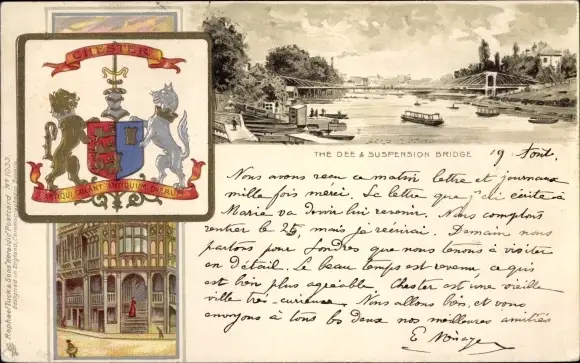 CHESTER
ANTIQUI COLANT ANTIQUUM DIERUM
Raphael Tuck & Sons "Heraldic" Postcard Nº 1033
Designed in England
THE DEE & SUSPENSION BRIDGE
19 Août.
Nous avons reçu ce matin lettre et journaux
mille fois merci. La lettre que j'ai écrite à
Maria va lui revenir. Nous comptons
rentrer le 25, mais je récrirai. Demain nous
partons pour Londres que nous tenons à visiter
en détail. Le beau temps est revenu, ce qui
est bien plus agréable. Chester est une vieille
ville très curieuse. Nous allons bien et vous
envoyons à tous les deux nos meilleures amitiés
E.